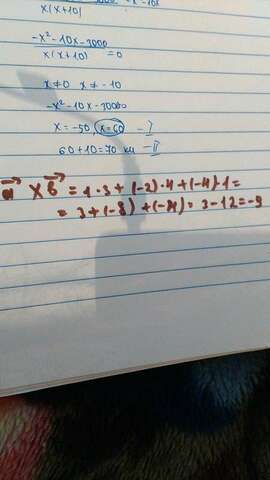 x(x+10)
-x²-10x-3000
x(x+10) =0
x≠0 x≠-10
-x²-10x-3000
x=-50, x=60 -I
60+10=70 км -II
a x b = 1·3+(-2)·4+(-4)·1=
= 3+(-8)+(-4)= 3-12=-9